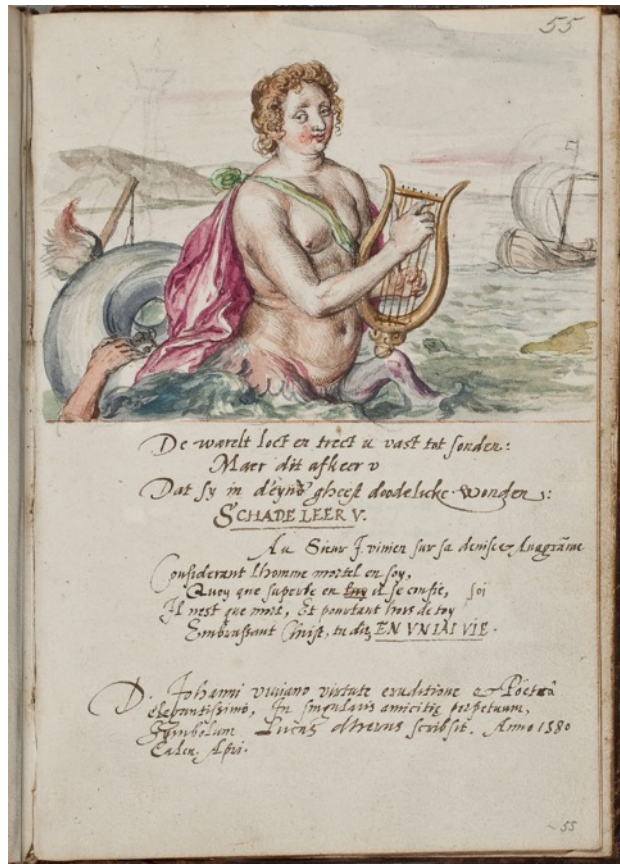 55
De warelt loct en trect u vast tot sonden:
Maer dit afkeer v
Dat sy in d'eynd' gheest doodelicke wonden:
SCHADE LEER V.
Au Sieur J. vivien sur sa devise & Anagrāme
Considerant lhomme mortel en soy,
Quoy que superbe en luy il se confie, soi
Il nest que mort, Et pourtant hors de toy
Embrassant Christ, tu dis, EN VN IAI VIE.
D. Johanni viviano virtute eruditione & Poëtică
elegantissimo, In singularis amicitię perpetuum,
Symbolum Lucas dHeerus scribsit. Anno 1580
Calen. Apri.
55